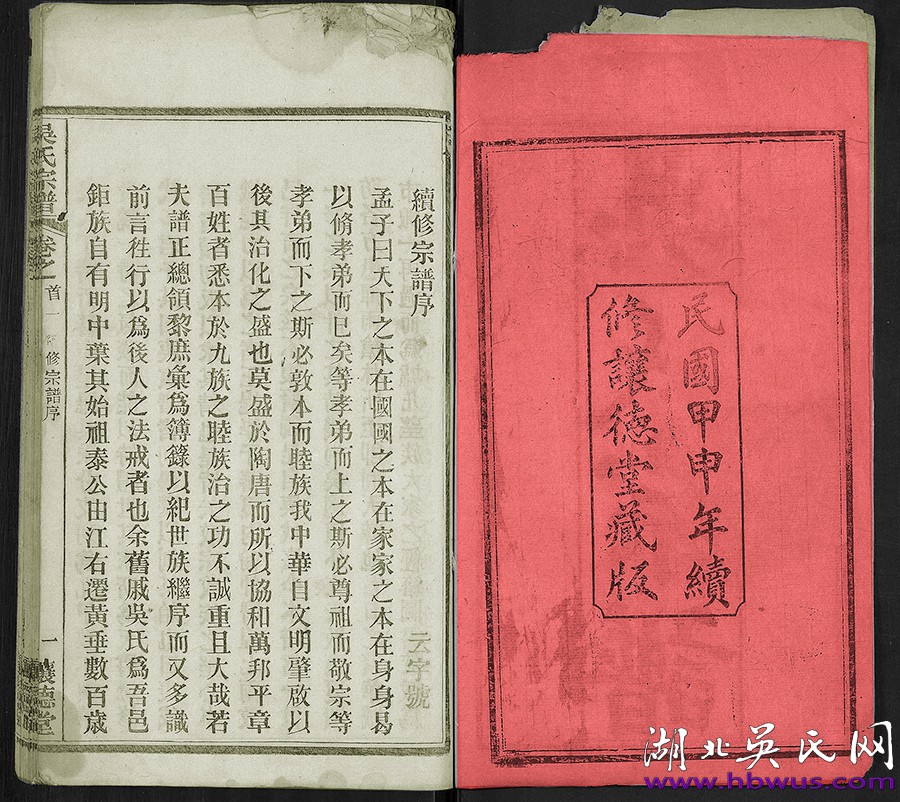 民國甲申年續
修讓德堂藏版
續修宗譜序
云字號
孟子曰天下之本在國國之本在家家之本在身身易
以脩孝弟而已矣等孝弟而上之斯必尊祖而敬宗等
孝弟而下之斯必敦本而睦族我中華自文明肇啟以
後其治化之盛也莫盛於陶唐而所以協和萬邦平章
百姓者悉本於九族之睦族治之功不誠重且大哉若
夫譜正總領黎庶彙為簿錄以紀世族繼序而又多識
前言徃行以為後人之法戒者也余舊戚吳氏為吾邑
鉅族自有明中葉其始祖泰公由江右遷黃垂數百歲
吳氏宗譜
卷之
首
一
修宗譜序
一
讓德堂
湖北吴氏网
www.hbwus.com